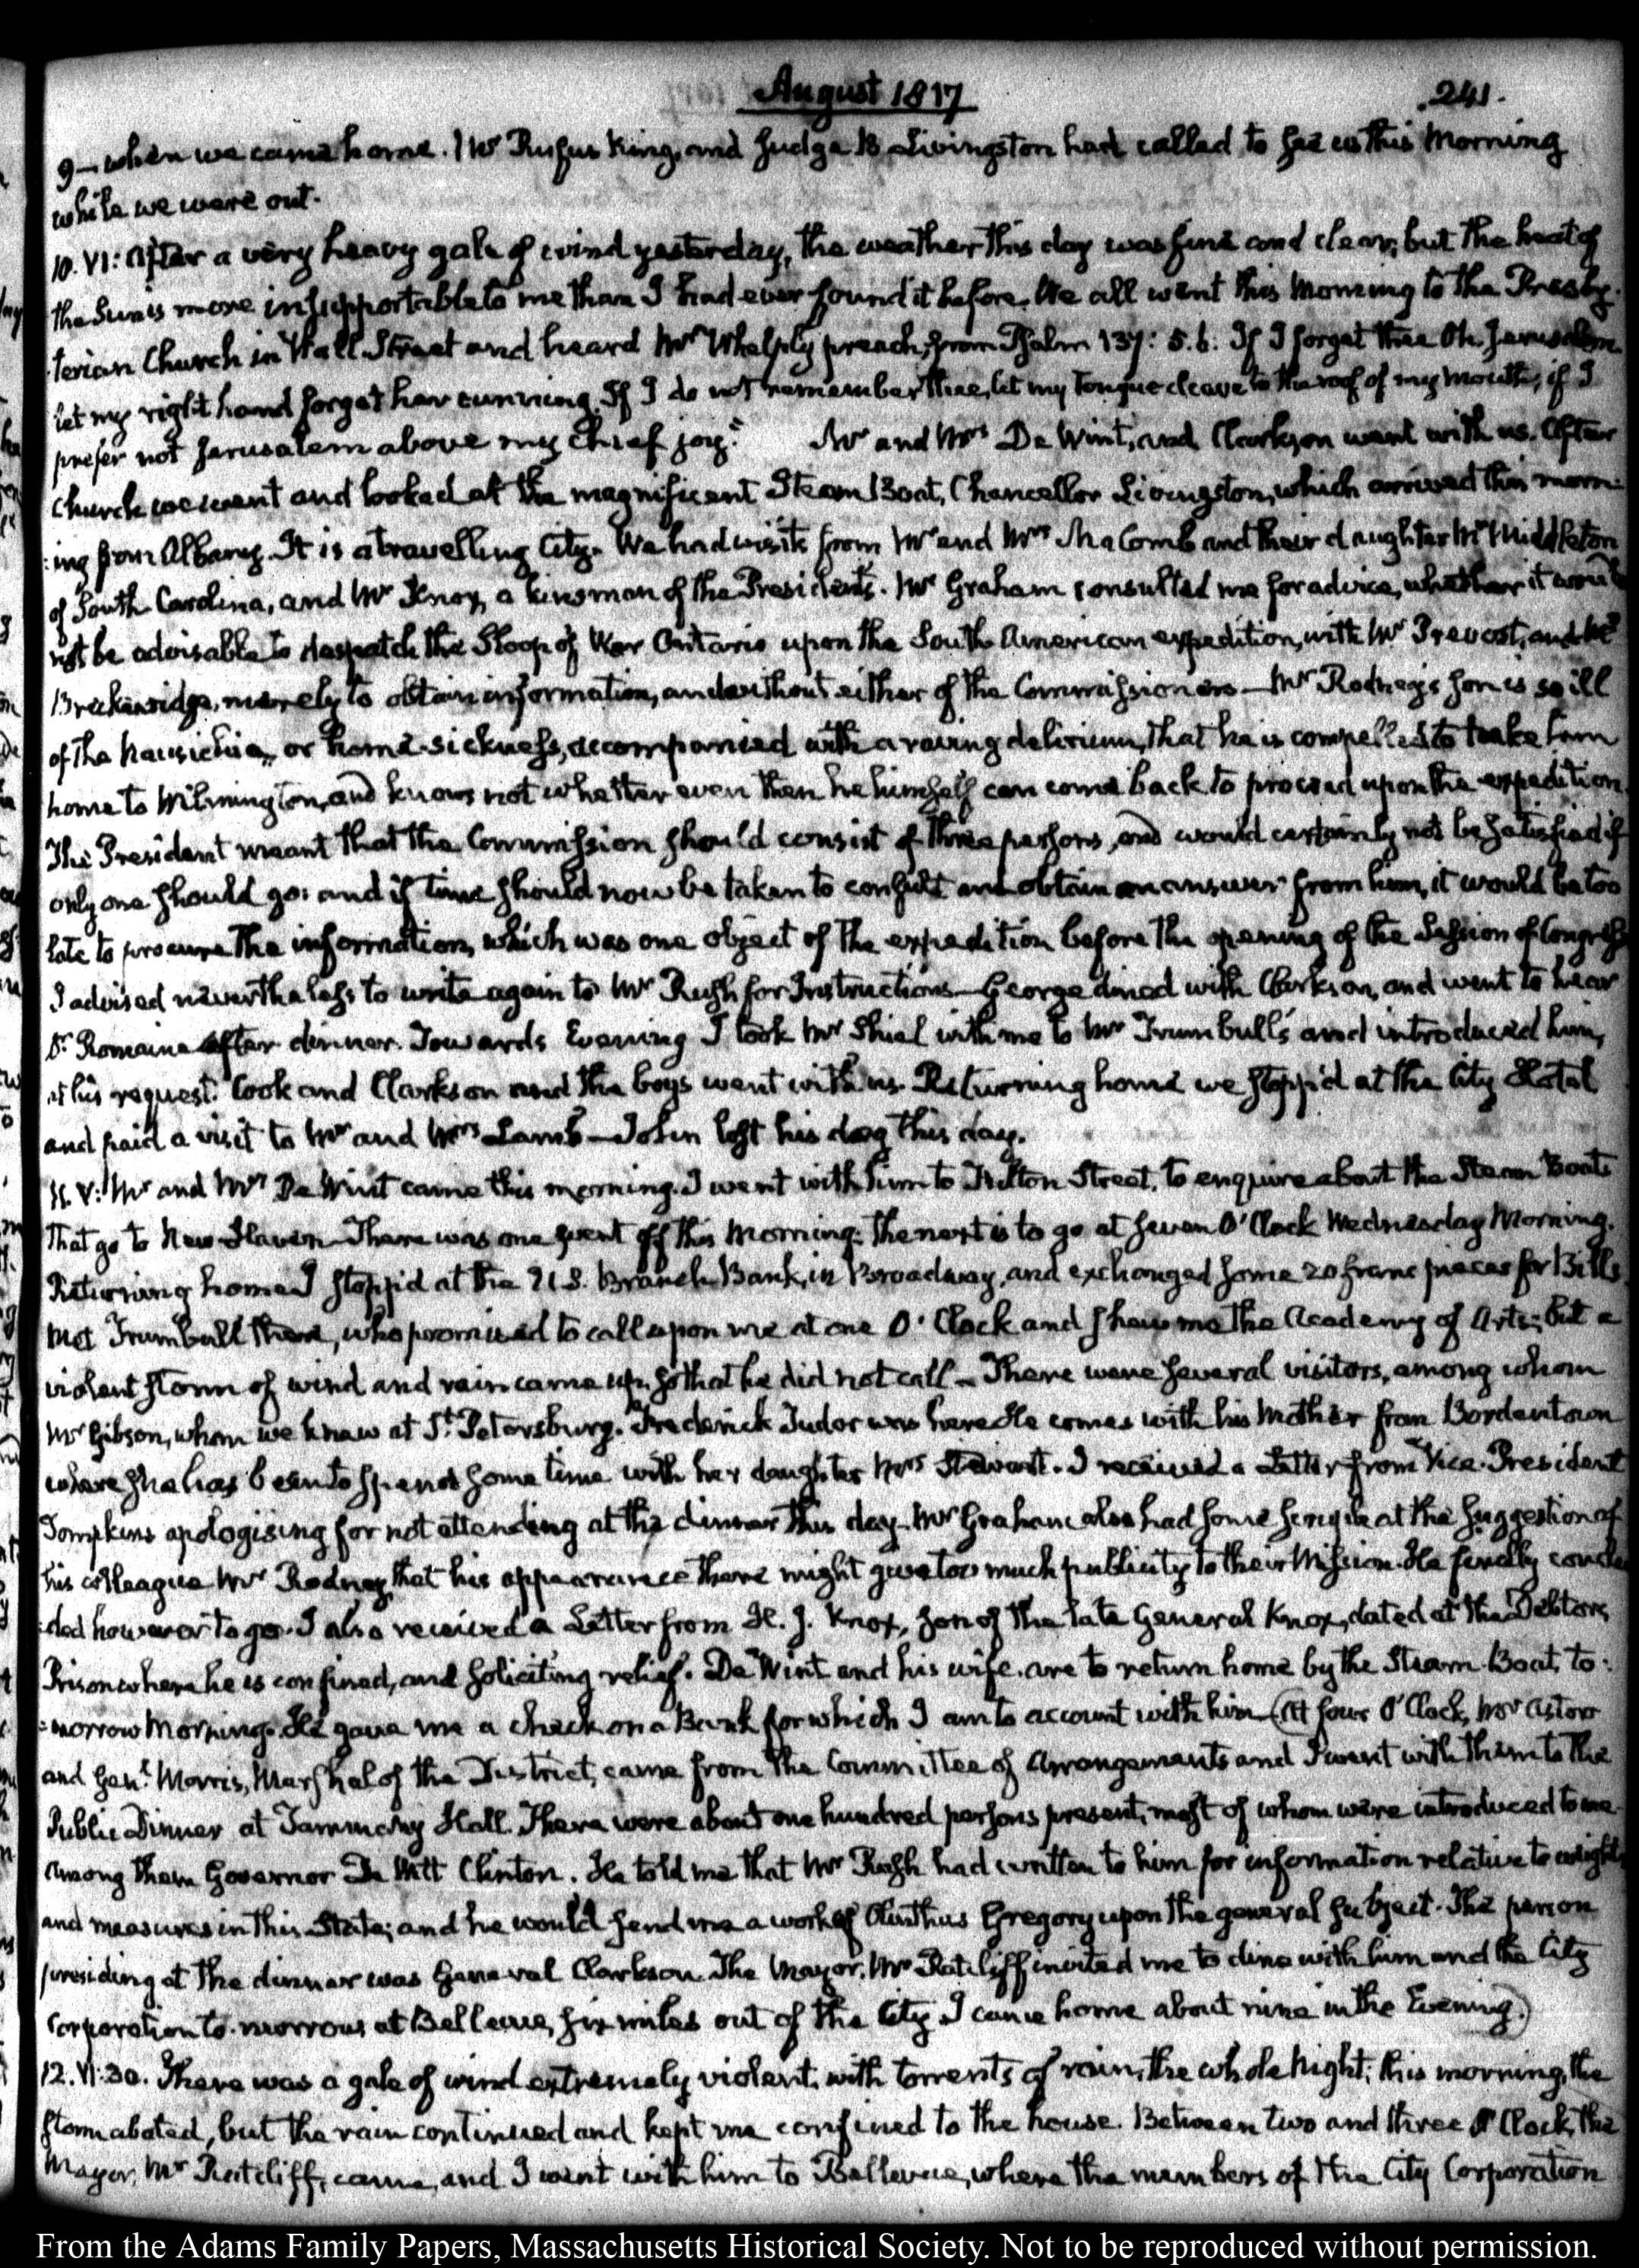 August 1817
241.
9— when we came home. Mr Rufus King, and Judge B Livingston had called to see us this Morning
while we were out.
10. VI: After a very heavy gale of wind yesterday, the weather this day was fine and clear; but the heat of
the Sun is more insupportable to me than I had ever found it before. We all went this Morning to the Presby-
terian Church in Wall Street and heard Mr Whelply preach, from Psalm 137: 5.6. If I forget thee Oh. Jerusalem
let my right hand forget her cunning. If I do not remember thee, let my Tongue cleave to the roof of my Mouth; if I
prefer not Jerusalem above my Chief joy." Mr and Mrs De Wint, and Clarkson went with us. After
Church we went and looked at the magnificent Steam Boat, Chancellor Livingston, which arrived this morn-
:ing from Albany. It is a travelling City. We had visits from Mr and Mrs MaComb and their daughter Mr Middleton
of South Carolina, and Mr Knox, a kinsman of the Presidents. Mr Graham consulted me for advice, whether it would
not be advisable to despatch the Sloop of War Ontario upon the South American expedition, with Mr Prevost, and Mr
Breckenridge, merely to obtain information, and without either of the Commissioners— Mr Rodney's son is so ill
of the or home-sickness, accompanied with a raving delirium, that he is compelled to take him
home to Wilmington, and knows not whether even then he himself can come back to proceed upon the expedition.
The President meant that the Commission should consist of three persons, and would certainly not be satisfied if
only one should go: and if time should now be taken to consult and obtain an answer from him, it would be too
late to procure the information, which was one object of the expedition before the opening of the Session of Congress
I advised nevertheless to write again to Mr Rush for Instructions— George dined with Clarkson, and went to hear
Dr Romaine after dinner. Towards Evening I took Mr Shiel with me to Mr Trumbull's and introduced him,
at his request. Cook and Clarkson and the boys went with us. Returning home we stopp'd at the City Hotel
and paid a visit to Mr and Mrs Lamb— John lost his dog this day.
11. V: Mr and Mrs De Wint came this morning. I went with him to Fulton Street, to enquire about the Steam Boats
that go to New-Haven— There was one went off this Morning: the next is to go at seven O'Clock Wednesday Morning.
Returning home I stopp'd at the U.S. Branch Bank, in Broadway, and exchanged some 20 franc pieces for Bills.
Met Trumbull there, who promised to call upon me at one O'Clock and shew me the Academy of Arts; but a
violent storm of wind and rain came up, so that he did not call— There were several visitors, among whom
Mr Gibson, whom we knew at St Petersburg. Frederick Tudor was here He comes with his Mother from Bordentown
where she has been to spend some time with her daughter Mrs Stewart. I received a Letter from Vice-President
Tompkins apologising for not attending at the dinner this day. Mr Graham also had some scruple at the suggestion of
his colleague Mr Rodney, that his appearance there might give too much publicity to their Mission. He finally conclu
:ded however to go. I also received a Letter from H. J. Knox, son of the late General Knox, dated at the Debtors
Prison where he is confined, and soliciting relief. De Wint and his wife are to return home by the Steam-Boat, to:
=morrow Morning. He gave me a check on a Bank for which I am to account with him— (At four O'Clock, Mr Astor
and Genl. Morris, Marshal of the District, came from the Committee of Arrangements and I went with them to the
Public Dinner at Tammany Hall. There were about one hundred persons present, most of whom were introduced to me.
Among them Governor De Witt Clinton. He told me that Mr Rush had written to him for information relative to weights
and measures in this State; and he would send me a work of Olinthus Gregory upon the general subject. The person
presiding at the dinner was General Clarkson. The Mayor, Mr Ratcliff invited me to dine with him and the City
Corporation to-morrow at Bellevue, six miles out of the City. I came home about nine in the Evening.)
12. VI:30. There was a gale of wind extremely violent, with torrents of rain, the whole Night; this morning, the
storm abated, but the rain continued and kept me confined to the house. Between two and three O'Clock, the
Mayor, Mr Ratcliff, came, and I went with him to Bellevue, where the members of the City Corporation
From the Adams Family Papers, Massachusetts Historical Society. Not to be reproduced without permission.